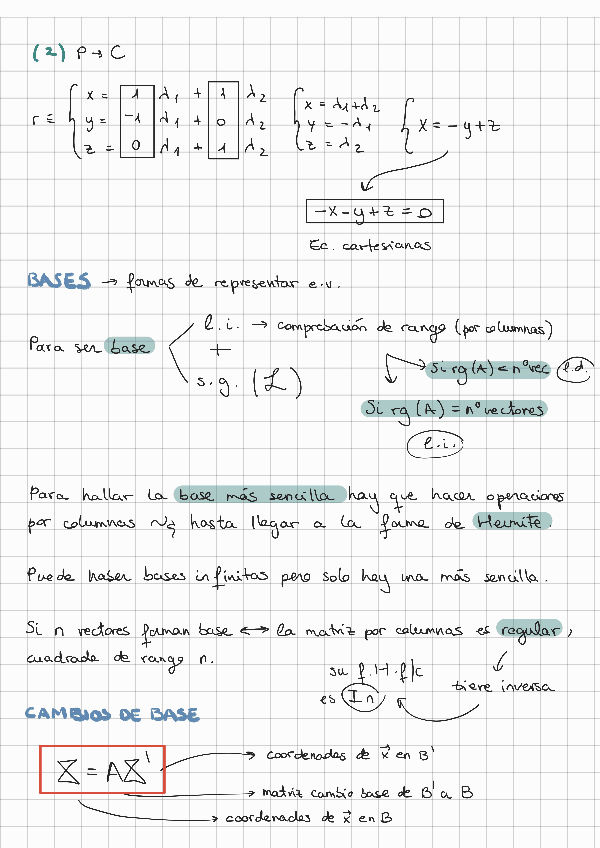 (2) P → C
r ≡ { x = 1 λ1 + 1 λ2 { x = λ1+λ2
y = -1 λ1 + 0 λ2 y = -λ1 { x = -y+z
z = 0 λ1 + 1 λ2 z = λ2
-x-y+z=0
Ec. cartesianas
BASES → formas de representar e.v.
l.i. → comprobación de rango (por columnas)
Para ser base +
s.g. (L)
Si rg(A) < nº vec l.d.
Si rg(A) = nº vectores
l.i.
Para hallar la base más sencilla hay que hacer operaciones
por columnas hasta llegar a la forma de Hermite.
Puede haber bases infinitas pero solo hay una más sencilla.
Si n vectores forman base ↔ la matriz por columnas es regular,
cuadrada de rango n.
su f.H.f/c
es In
tiene inversa
CAMBIOS DE BASE
X = AX'
coordenadas de x⃗ en B'
matriz cambio base de B' a B
coordenadas de x⃗ en B